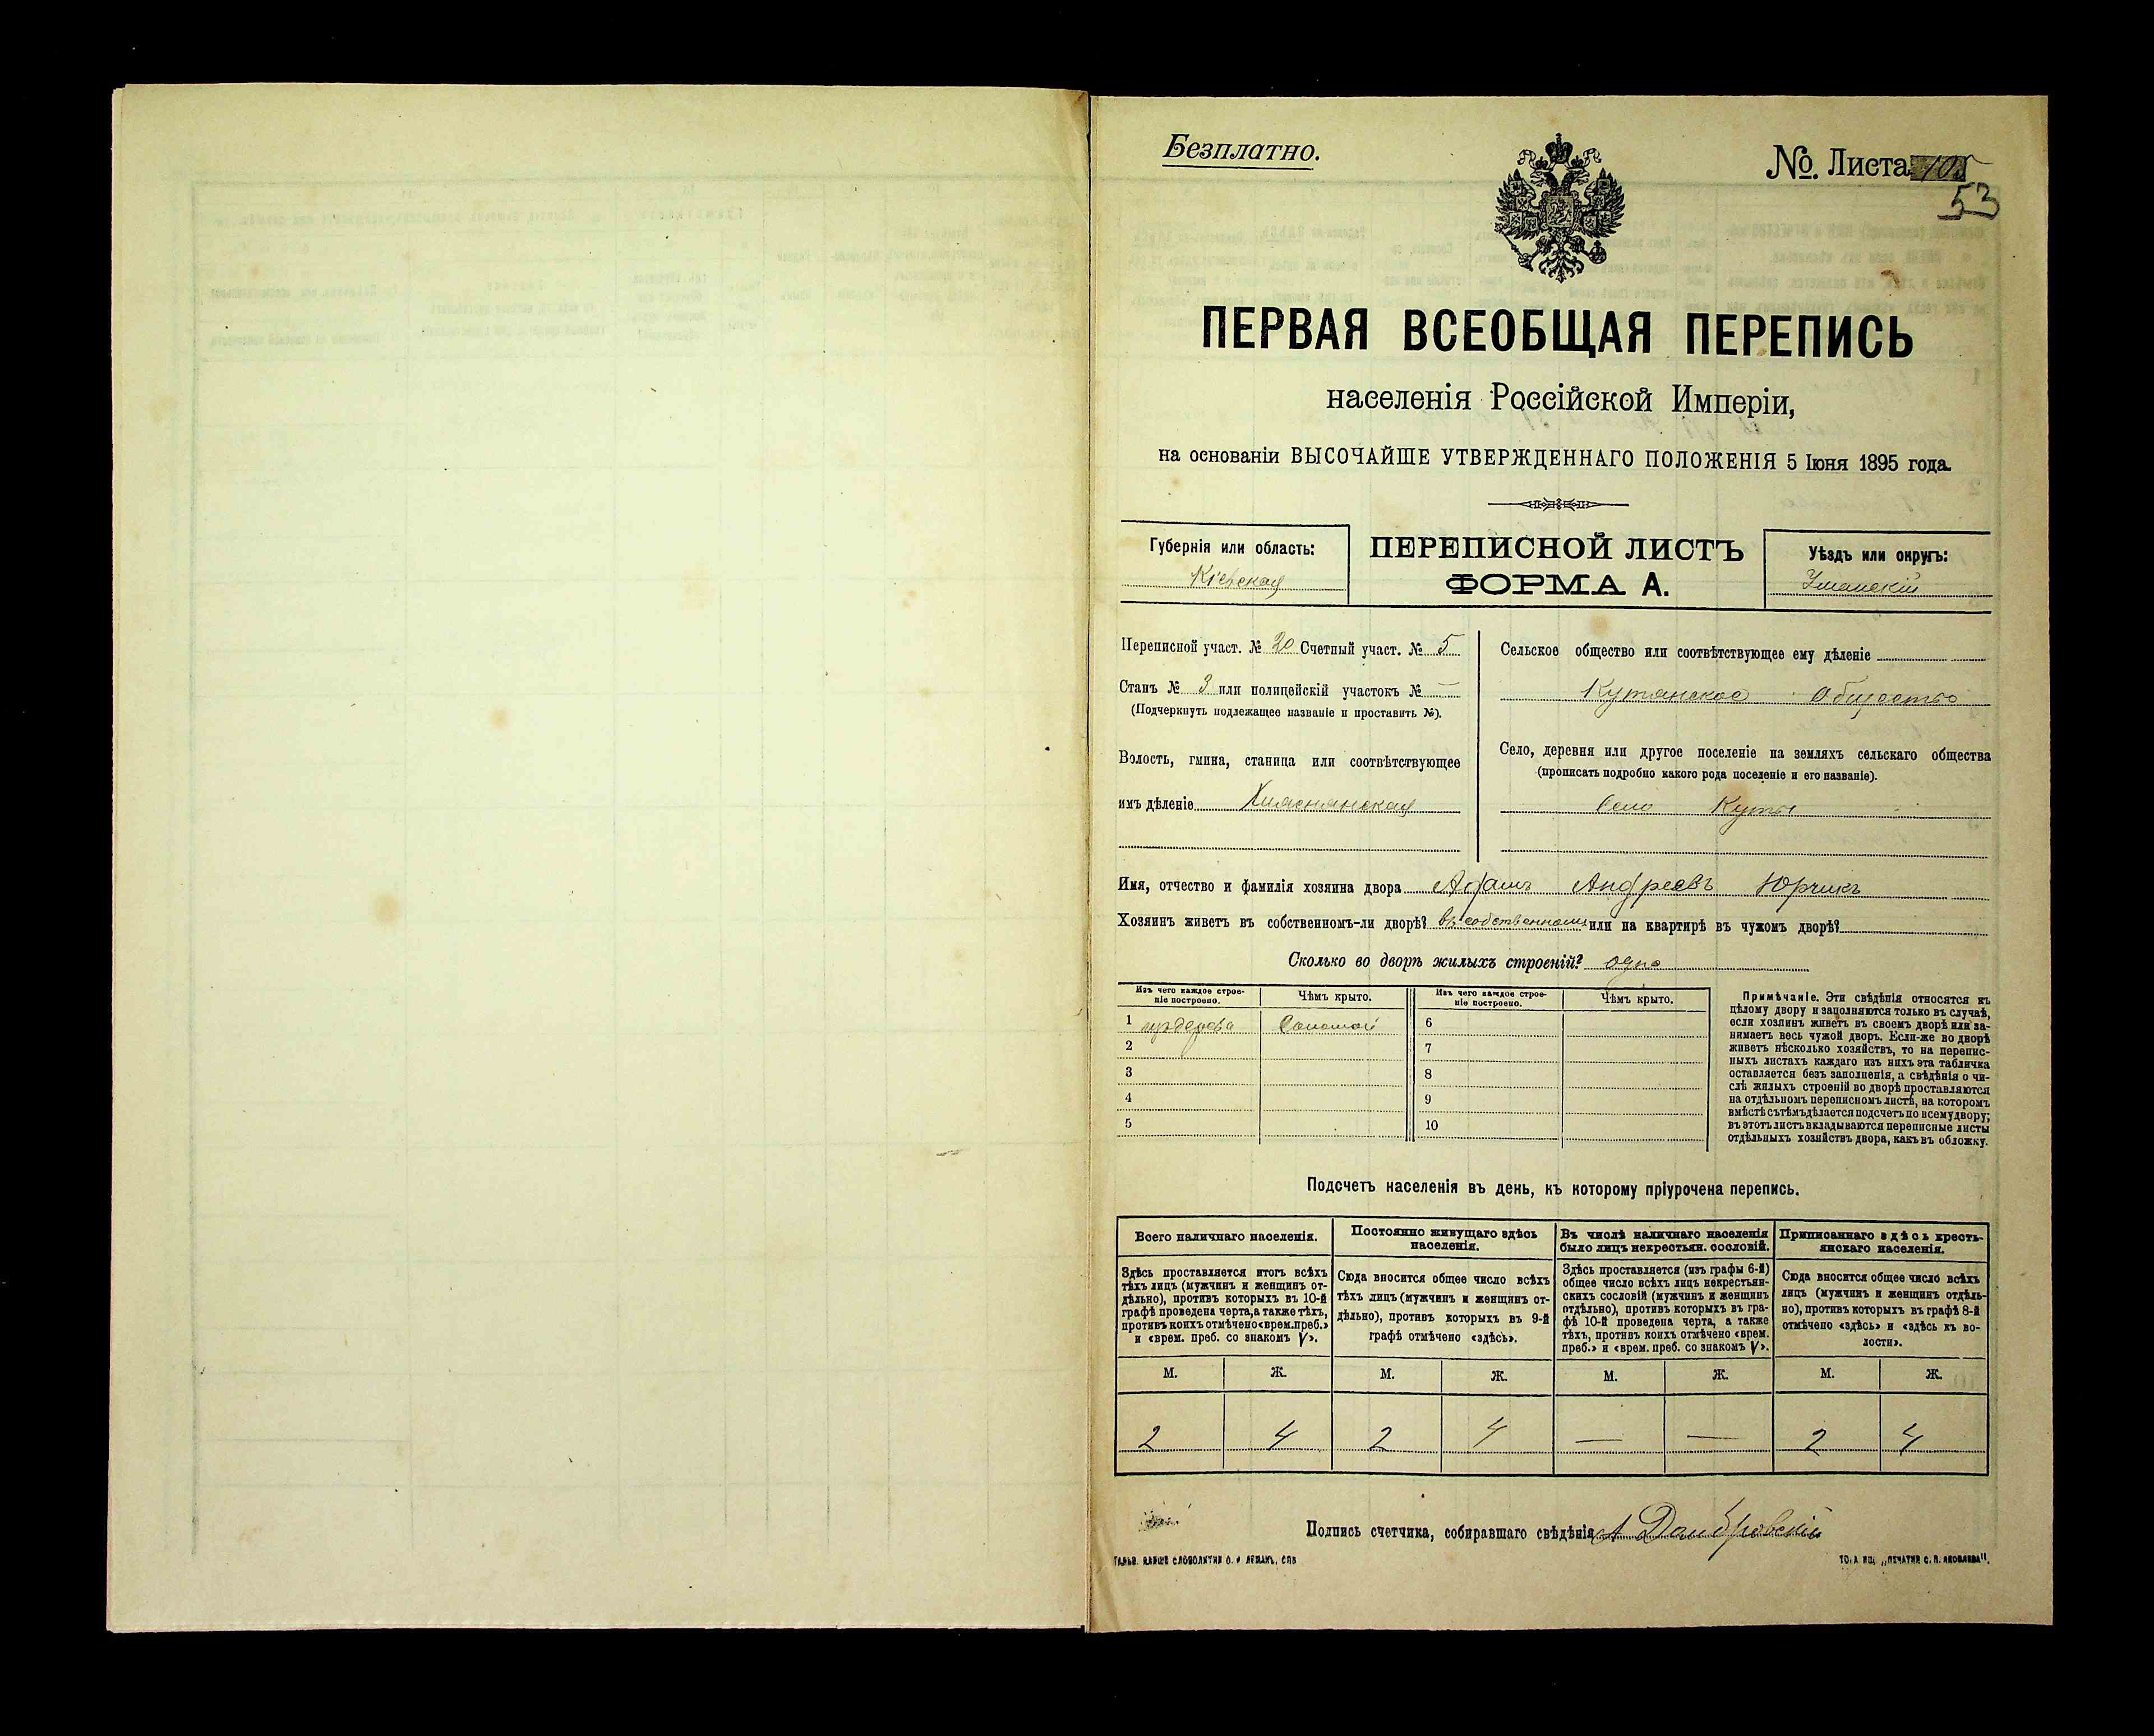 Безплатно.
№. Листа 105
53
ПЕРВАЯ ВСЕОБЩАЯ ПЕРЕПИСЬ
населенія Россійской Имперіи,
на основаніи ВЫСОЧАЙШЕ УТВЕРЖДЕННАГО ПОЛОЖЕНІЯ 5 Іюня 1895 года.
Губернія или область:
Кіевская
ПЕРЕПИСНОЙ ЛИСТЪ
ФОРМА А.
Уѣздъ или округъ:
Уманскій
Переписной участ. № 20 Счетный участ. № 5
Станъ № 3 или полицейскій участокъ № —
(Подчеркнуть подлежащее названіе и проставить №).
Волость, гмина, станица или соотвѣтствующее
имъ дѣленіе
Сельское общество или соотвѣтствующее ему дѣленіе
Кутянское Общество
Село, деревня или другое поселеніе на земляхъ сельскаго общества
(прописать подробно какого рода поселеніе и его названіе).
Село Куты
Имя, отчество и фамилія хозяина двора Адамъ Андреевъ Юрчикъ
Хозяинъ живетъ въ собственномъ-ли дворѣ? въ собственномъ или на квартирѣ въ чужомъ дворѣ?
Сколько во дворѣ жилыхъ строеній? одно
Изъ чего каждое строе-
ніе построено.
Чѣмъ крыто.
Изъ чего каждое строе-
ніе построено.
Чѣмъ крыто.
1 изъ дерева Соломой 6
2 7
3 8
4 9
5 10
Примѣчаніе. Эти свѣдѣнія относятся къ
цѣлому двору и заполняются только въ случаѣ,
если хозяинъ живетъ въ своемъ дворѣ или за-
нимаетъ весь чужой дворъ. Если-же во дворѣ
живетъ нѣсколько хозяйствъ, то на перепис-
ныхъ листахъ каждаго изъ нихъ эта табличка
оставляется безъ заполненія, а свѣдѣнія о чи-
слѣ жилыхъ строеній во дворѣ проставляются
на отдѣльномъ переписномъ листѣ, на которомъ
вмѣстѣ съ тѣмъ дѣлается подсчетъ по всему двору;
въ этотъ листъ вкладываются переписные листы
отдѣльныхъ хозяйствъ двора, какъ въ обложку.
Подсчетъ населенія въ день, къ которому пріурочена перепись.
Всего наличнаго населенія.
Постоянно живущаго здѣсь
населенія.
Въ числѣ наличнаго населенія
было лицъ некрестьян. сословій.
Приписаннаго здѣсь кресть-
янскаго населенія.
Здѣсь проставляется итогъ всѣхъ
тѣхъ лицъ (мужчинъ и женщинъ от-
дѣльно), противъ которыхъ въ 10-й
графѣ проведена черта, а также тѣхъ,
противъ коихъ отмѣчено «врем. преб.»
и «врем. преб. со знакомъ V».
Сюда вносится общее число всѣхъ
тѣхъ лицъ (мужчинъ и женщинъ от-
дѣльно), противъ которыхъ въ 9-й
графѣ отмѣчено «здѣсь».
Здѣсь проставляется (изъ графы 6-й)
общее число всѣхъ лицъ некрестьян-
скихъ сословій (мужчинъ и женщинъ
отдѣльно), противъ которыхъ въ гра-
фѣ 10-й проведена черта, а также
тѣхъ, противъ коихъ отмѣчено «врем.
преб.» и «врем. преб. со знакомъ V».
Сюда вносится общее число всѣхъ
лицъ (мужчинъ и женщинъ отдѣль-
но), противъ которыхъ въ графѣ 8-й
отмѣчено «здѣсь» и «здѣсь къ во-
лости».
М. Ж. М. Ж. М. Ж. М. Ж.
2 4 2 4 — — 2 4
Подпись счетчика, собиравшаго свѣдѣнія А Домбровскій